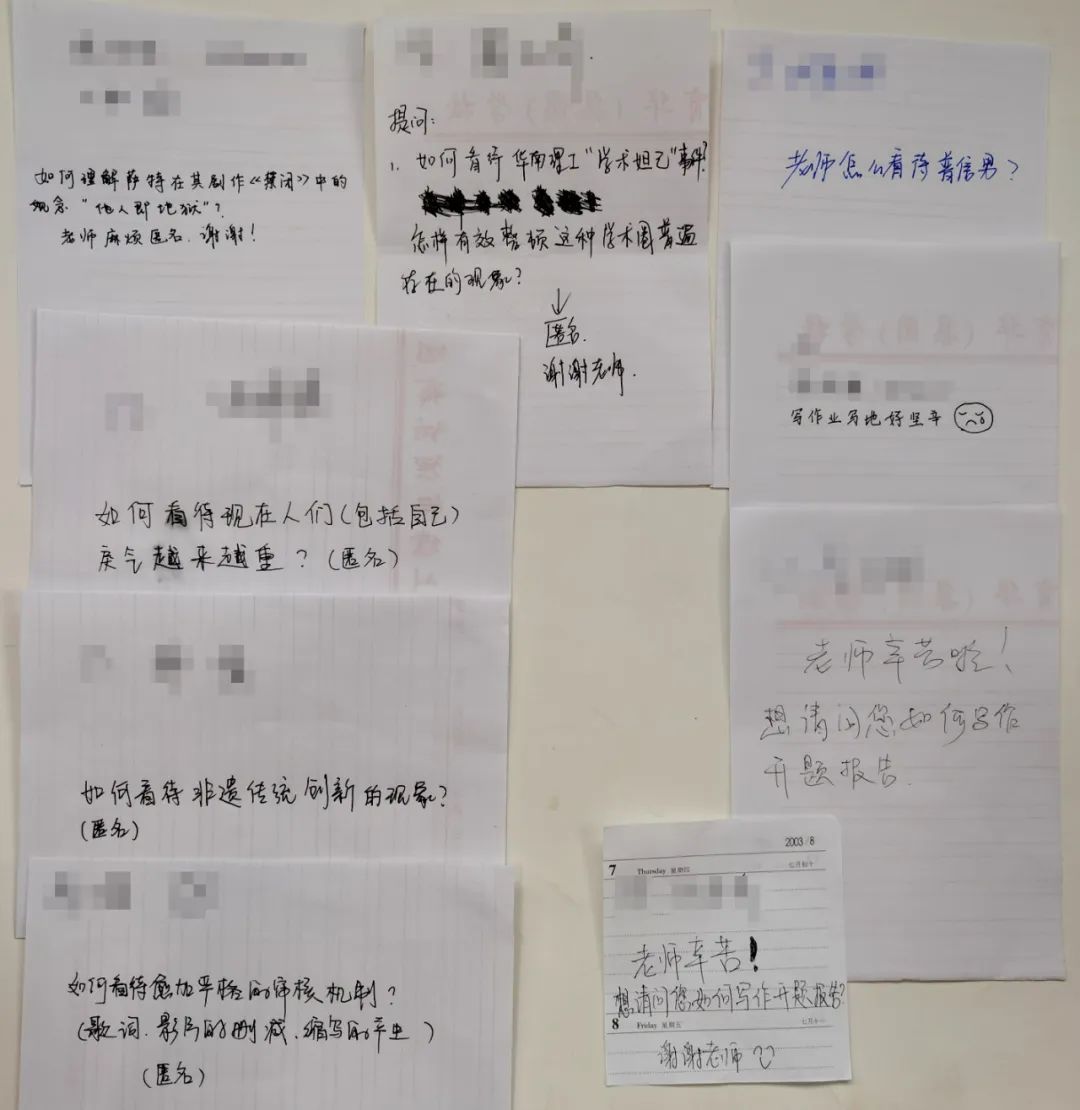 如何理解萨特在其创作《禁闭》中的
观念“他人即地狱”?
老师麻烦匿名,谢谢!
提问:
1. 如何看待华南理工“学术妲己”事件?
怎样有效整顿这种学术圈普遍
存在的现象?
↓
匿名.
谢谢老师.
老师怎么看待普信男?
写作业写地好坚辛
如何看待现在人们(包括自己)
戾气越来越重?(匿名)
老师辛苦啦!
想请问您如何写作
开题报告.
如何看待非遗传统创新的现象?
(匿名)
2003/8
7 Thursday 星期四 七月初十
老师辛苦!
想请问您如何写作开题报告?
8 Friday 星期五 七月十一
谢谢老师
如何看待愈加严格的审核机制?
(歌词.影片的删减、缩写的产生)
(匿名)